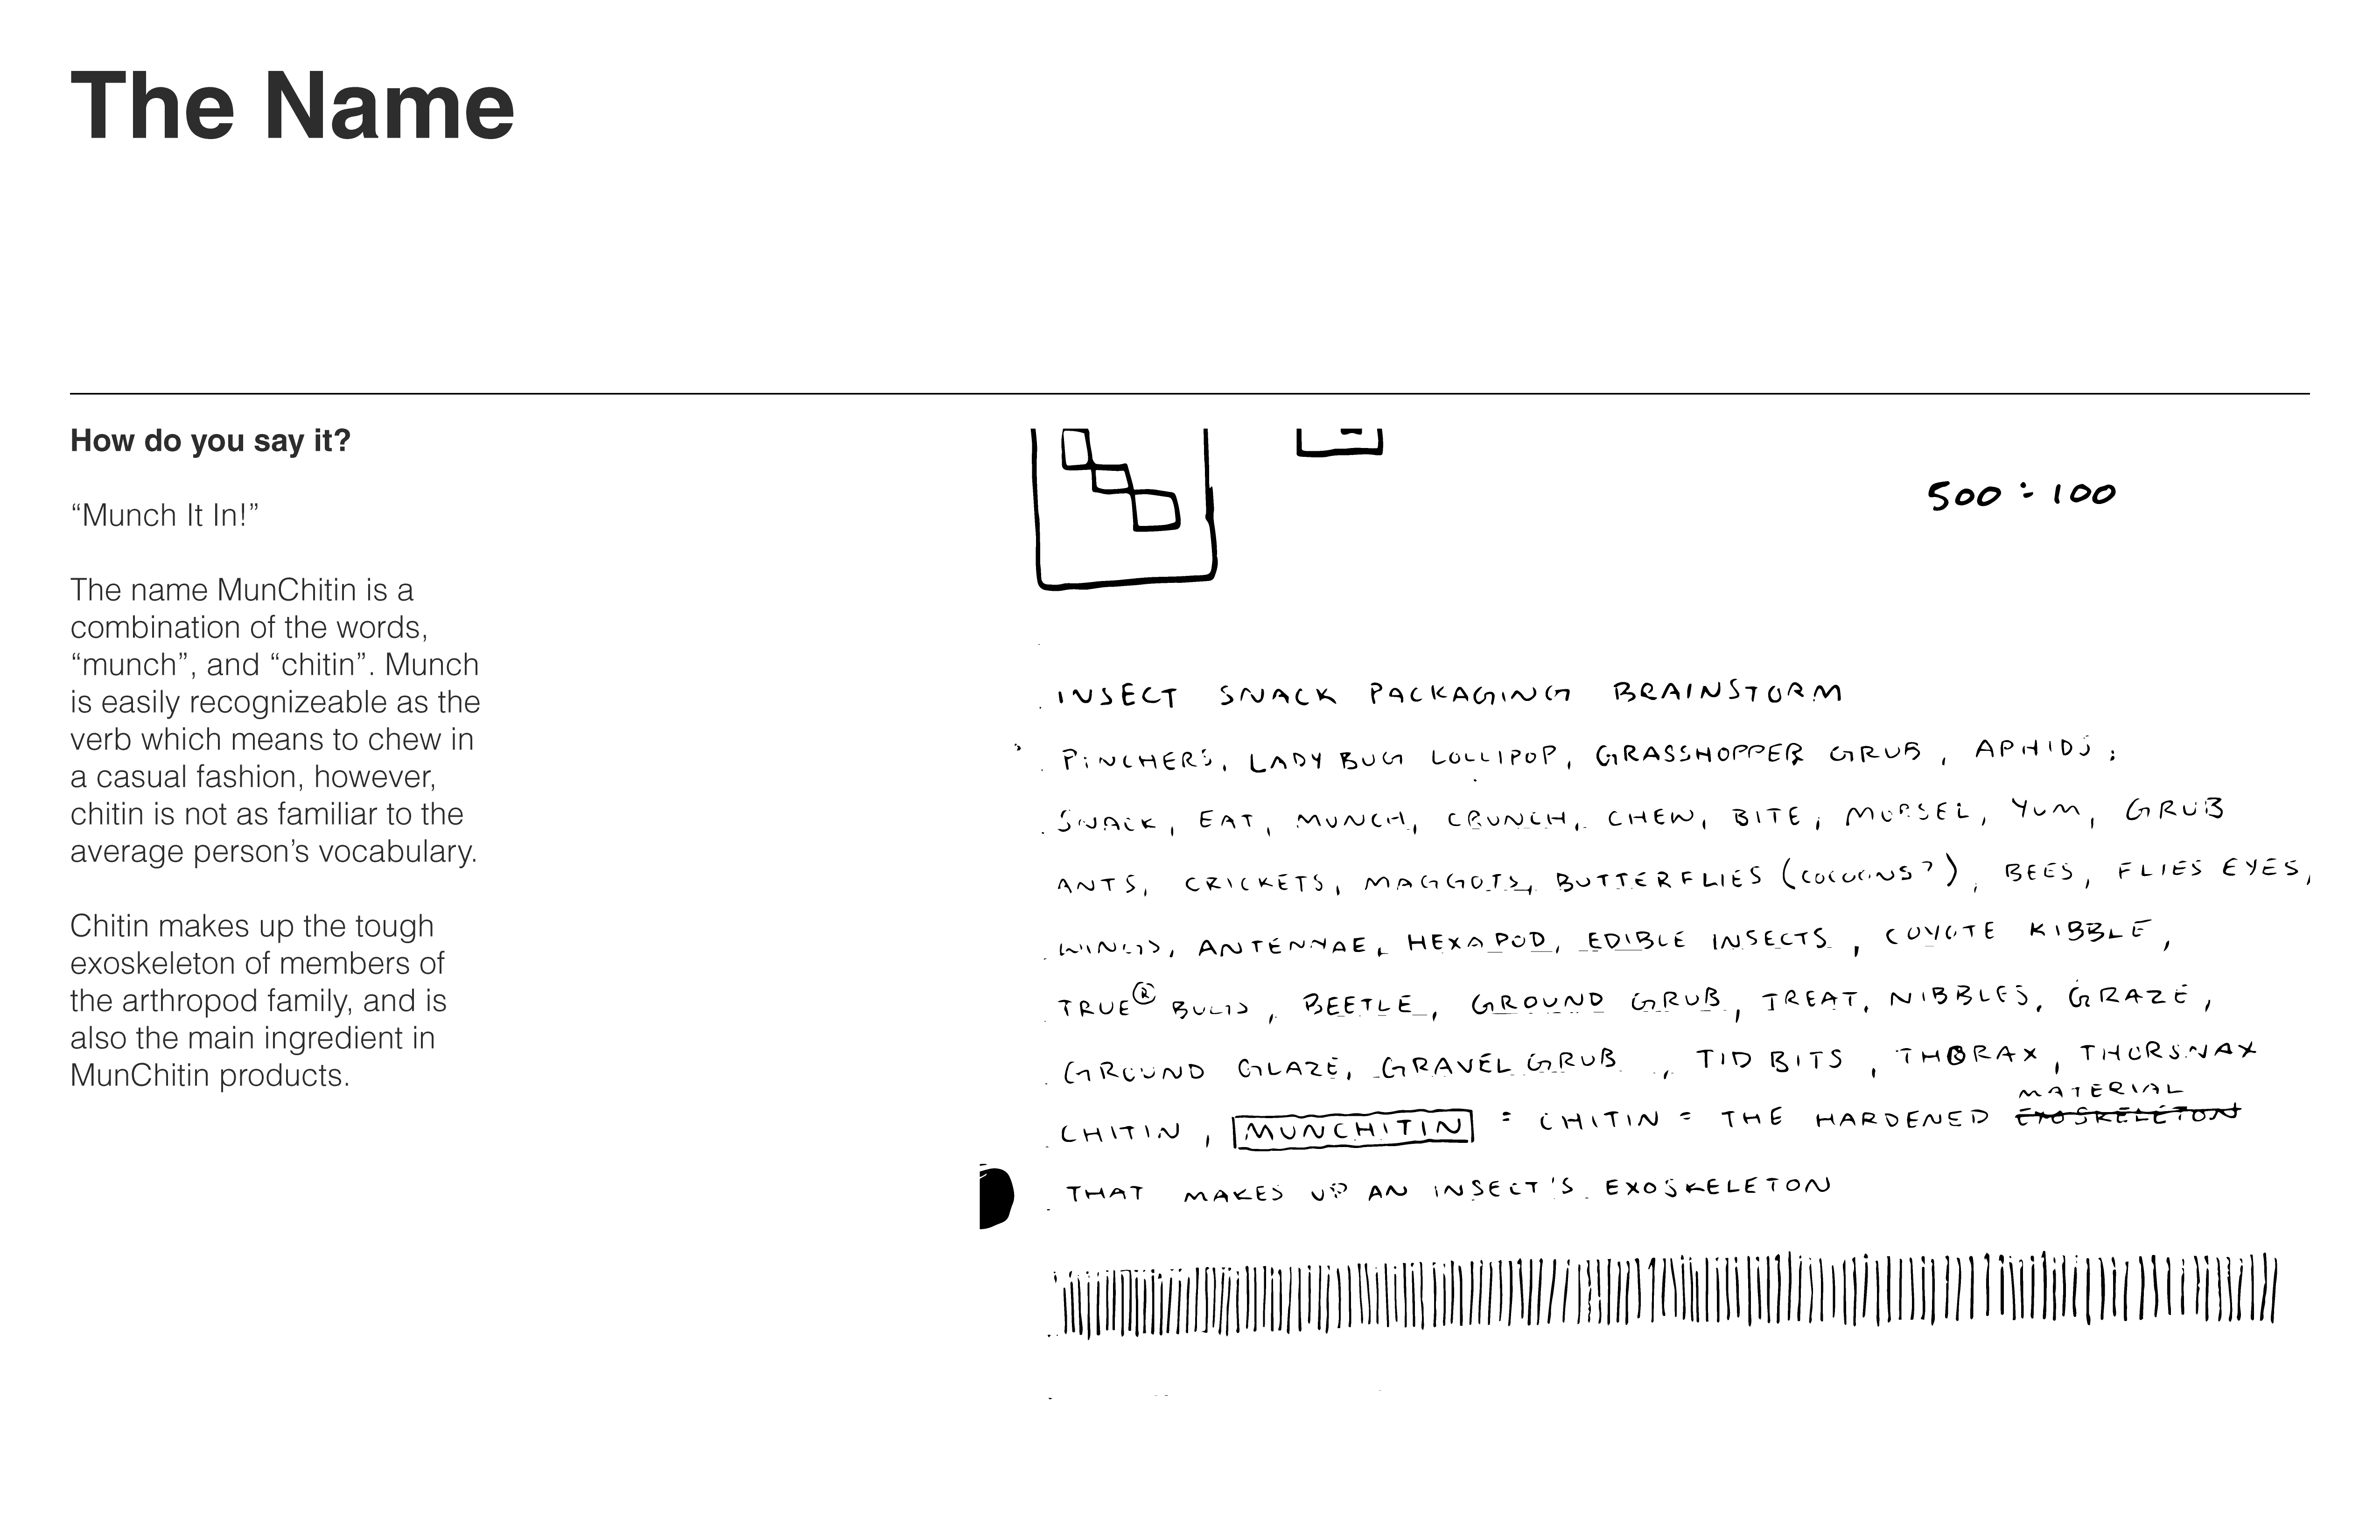 The Name
How do you say it?
“Munch It In!”
The name MunChitin is a
combination of the words,
“munch”, and “chitin”. Munch
is easily recognizeable as the
verb which means to chew in
a casual fashion, however,
chitin is not as familiar to the
average person’s vocabulary.
Chitin makes up the tough
exoskeleton of members of
the arthropod family, and is
also the main ingredient in
MunChitin products.
500 ÷ 100
INSECT SNACK PACKAGING BRAINSTORM
PINCHERS, LADY BUG LOLLIPOP, GRASSHOPPER GRUB, APHIDS,
SNACK, EAT, MUNCH, CRUNCH, CHEW, BITE, MORSEL, YUM, GRUB
ANTS, CRICKETS, MAGGOTS, BUTTERFLIES (COCOONS?), BEES, FLIES EYES,
WINGS, ANTENNAE, HEXAPOD, EDIBLE INSECTS, COYOTE KIBBLE,
TRUE® BUGS, BEETLE, GROUND GRUB, TREAT, NIBBLES, GRAZE,
GROUND GLAZE, GRAVEL GRUB, TID BITS, THORAX, THORSNAX
MATERIAL
CHITIN, MUNCHITIN = CHITIN = THE HARDENED EXOSKELETON
THAT MAKES UP AN INSECT'S EXOSKELETON